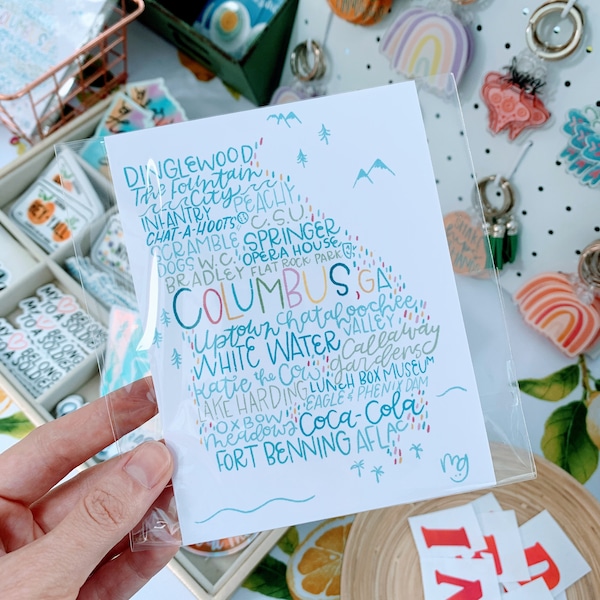 DINGLEWOOD
The Fountain
City
PEACHY
INFANTRY
C.S.U.
CHAT-A-HOOTS
SCRAMBLE
SPRINGER
DOGS W.C.
OPERA HOUSE
BRADLEY
FLAT ROCK PARK
COLUMBUS, GA
Uptown
Chatahoochee
VALLEY
WHITE WATER
Callaway
Gardens
Katie the Cow
LUNCH BOX MUSEUM
LAKE HARDING
EAGLE & PHENIX DAM
OXBOW
Meadows
Coca-Cola
FORT BENNING
AFLAC